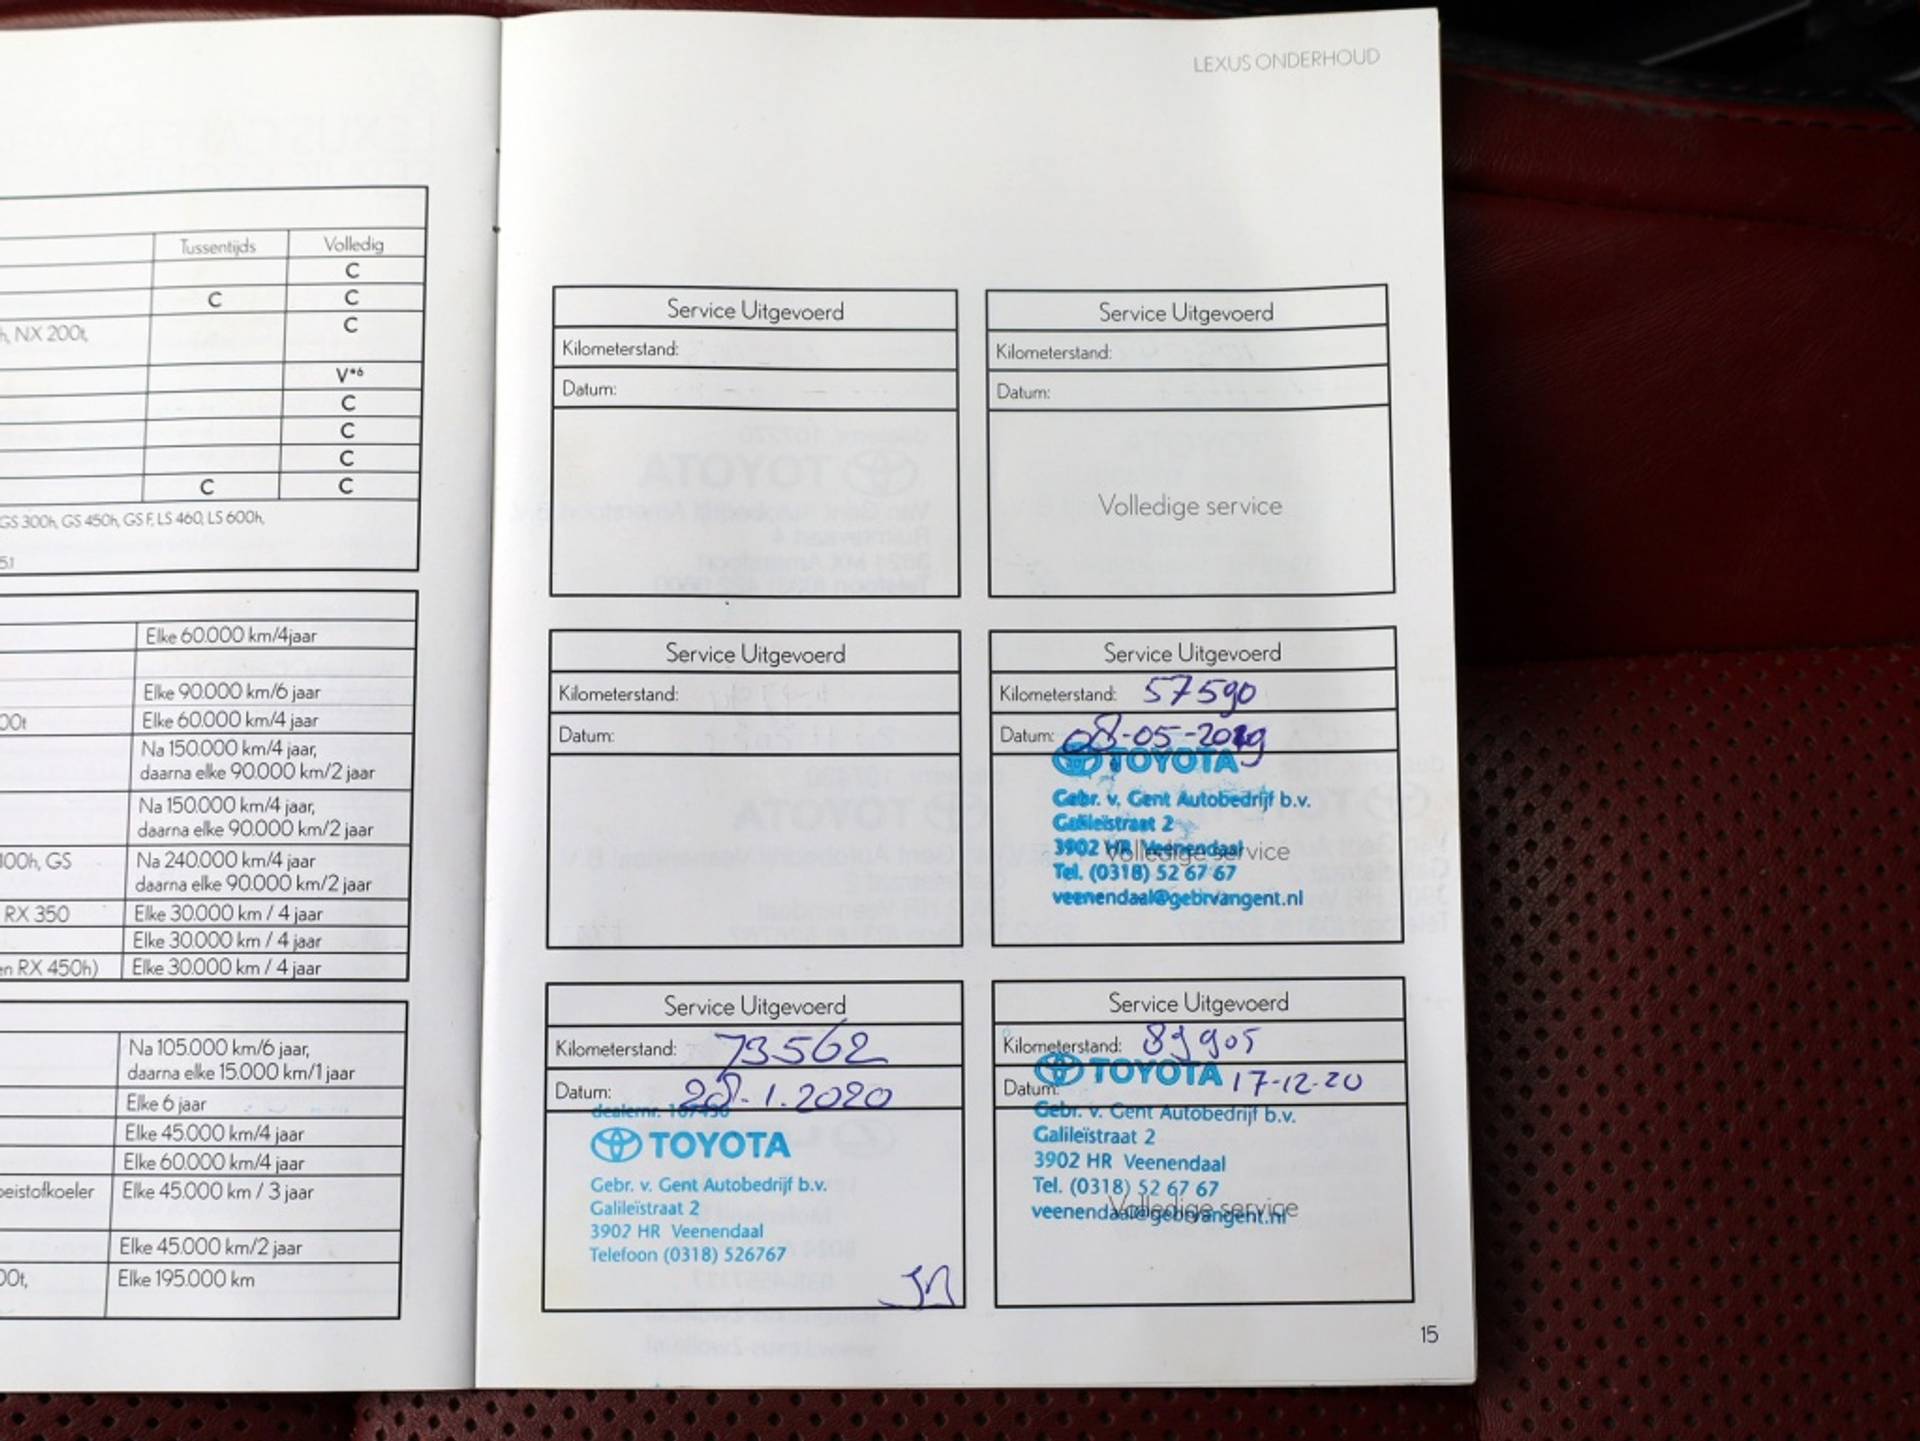 Tussentijds Volledig
C
C C
h, NX 200t, C
V*6
C
C
C
C C
GS 300h, GS 450h, GS F, LS 460, LS 600h,
51
Elke 60.000 km/4jaar
Elke 90.000 km/6 jaar
00t Elke 60.000 km/4 jaar
Na 150.000 km/4 jaar,
daarna elke 90.000 km/2 jaar
Na 150.000 km/4 jaar,
daarna elke 90.000 km/2 jaar
300h, GS Na 240.000 km/4 jaar
daarna elke 90.000 km/2 jaar
RX 350 Elke 30.000 km / 4 jaar
Elke 30.000 km / 4 jaar
en RX 450h) Elke 30.000 km / 4 jaar
Na 105.000 km/6 jaar,
daarna elke 15.000 km/1 jaar
Elke 6 jaar
Elke 45.000 km/4 jaar
Elke 60.000 km/4 jaar
oeistofkoeler Elke 45.000 km / 3 jaar
Elke 45.000 km/2 jaar
00t, Elke 195.000 km
LEXUS ONDERHOUD
Service Uitgevoerd
Kilometerstand:
Datum:
Service Uitgevoerd
Kilometerstand:
Datum:
Volledige service
Service Uitgevoerd
Kilometerstand:
Datum:
Service Uitgevoerd
Kilometerstand: 57590
Datum: 08-05-2019
TOYOTA
Gebr. v. Gent Autobedrijf b.v.
Galileïstraat 2
3902 HR Veenendaal
Volledige service
Tel. (0318) 52 67 67
veenendaal@gebrvangent.nl
Service Uitgevoerd
Kilometerstand: 73562
Datum: 28.1.2020
dealernr. 107430
TOYOTA
Gebr. v. Gent Autobedrijf b.v.
Galileïstraat 2
3902 HR Veenendaal
Telefoon (0318) 526767
Service Uitgevoerd
Kilometerstand: 89905
TOYOTA
Datum: 17-12-20
Gebr. v. Gent Autobedrijf b.v.
Galileïstraat 2
3902 HR Veenendaal
Tel. (0318) 52 67 67
Volledige service
veenendaal@gebrvangent.nl
15